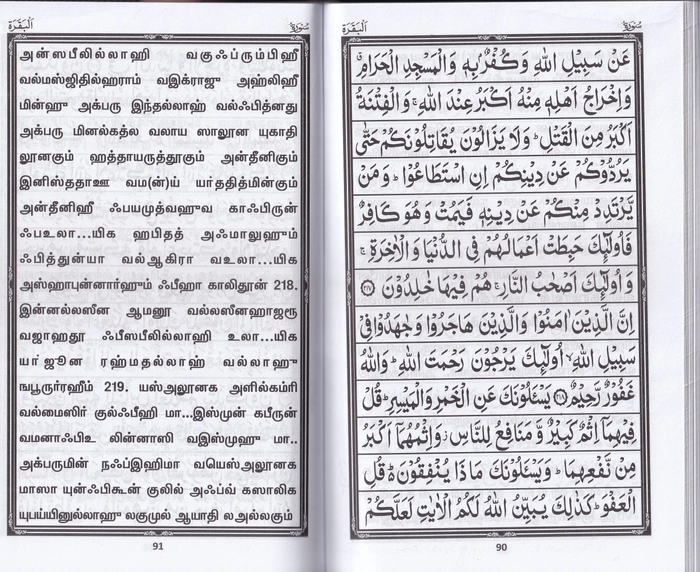 اَلْبَقَرَة
سُوْرَةُ
அன்ஸபீலில்லாஹி வகுஃப்ரும்பிஹீ
வல்மஸ்ஜிதில்ஹராம் வஇக்ராஜு அஹ்லிஹீ
மின்ஹு அக்பரு இந்தல்லாஹ் வல்ஃபித்னது
அக்பரு மினல்கத்ல வலாய ஸாலூன யுகாதி
லூனகும் ஹத்தாயருத்தூகும் அன்தீனிகும்
இனிஸ்ததாஊ வம(ன்)ய் யர்ததித்மின்கும்
அன்தீனிஹீ ஃபயமுத்வஹுவ காஃபிருன்
ஃபஉலா...யிக ஹபிதத் அஃமாலுஹும்
ஃபித்துன்யா வல்ஆகிரா வஉலா...யிக
அஸ்ஹாபுன்னார்ஹும் ஃபீஹா காலிதூன் 218.
இன்னல்லஸீன ஆமனூ வல்லஸீனஹாஜரூ
வஜாஹதூ ஃபீஸபீலில்லாஹி உலா...யிக
யர்ஜூன ரஹ்மதல்லாஹ் வல்லாஹு
ஙபூருர்ரஹீம் 219. யஸ்அலூனக அனில்கம்ரி
வல்மைஸிர் குல்ஃபீஹி மா...இஸ்முன் கபீருன்
வமனாஃபிஉ லின்னாஸி வஇஸ்முஹு மா..
அக்பருமின் நஃப்இஹிமா வயெஸ்அலூனக
மாஸா யுன்ஃபிகூன் குலில் அஃப்வ் கஸாலிக
யுபய்யினுல்லாஹு லகுமுல் ஆயாதி லஅல்லகும்
91
اَلْبَقَرَة
سُوْرَةُ
عَنْ سَبِيْلِ اللهِ وَكُفْرٌۢ بِهٖ وَالْمَسْجِدِ الْحَرَامِ
وَاِخْرَاجُ اَهْلِهٖ مِنْهُ اَكْبَرُ عِنْدَ اللهِ ۚ وَالْفِتْنَةُ
اَكْبَرُ مِنَ الْقَتْلِ ؕ وَلَا يَزَالُوْنَ يُقَاتِلُوْنَكُمْ حَتّٰى
يَرُدُّوْكُمْ عَنْ دِيْنِكُمْ اِنِ اسْتَطَاعُوْا ؕ وَمَنْ
يَّرْتَدِدْ مِنْكُمْ عَنْ دِيْنِهٖ فَيَمُتْ وَهُوَ كَافِرٌ
فَاُولٰٓئِكَ حَبِطَتْ اَعْمَالُهُمْ فِى الدُّنْيَا وَالْاٰخِرَةِ ۚ
وَاُولٰٓئِكَ اَصْحٰبُ النَّارِ ۚ هُمْ فِيْهَا خٰلِدُوْنَ ﴿٢١٧﴾
اِنَّ الَّذِيْنَ اٰمَنُوْا وَالَّذِيْنَ هَاجَرُوْا وَجٰهَدُوْا فِىْ
سَبِيْلِ اللهِ ۙ اُولٰٓئِكَ يَرْجُوْنَ رَحْمَتَ اللهِ ؕ وَاللهُ
غَفُوْرٌ رَّحِيْمٌ ﴿٢١٨﴾ يَسْـَٔلُوْنَكَ عَنِ الْخَمْرِ وَالْمَيْسِرِ ؕ قُلْ
فِيْهِمَآ اِثْمٌ كَبِيْرٌ وَّمَنَافِعُ لِلنَّاسِ ۫ وَاِثْمُهُمَآ اَكْبَرُ
مِنْ نَّفْعِهِمَا ؕ وَيَسْـَٔلُوْنَكَ مَاذَا يُنْفِقُوْنَ ؕ قُلِ
الْعَفْوَ ؕ كَذٰلِكَ يُبَيِّنُ اللهُ لَكُمُ الْاٰيٰتِ لَعَلَّكُمْ
90